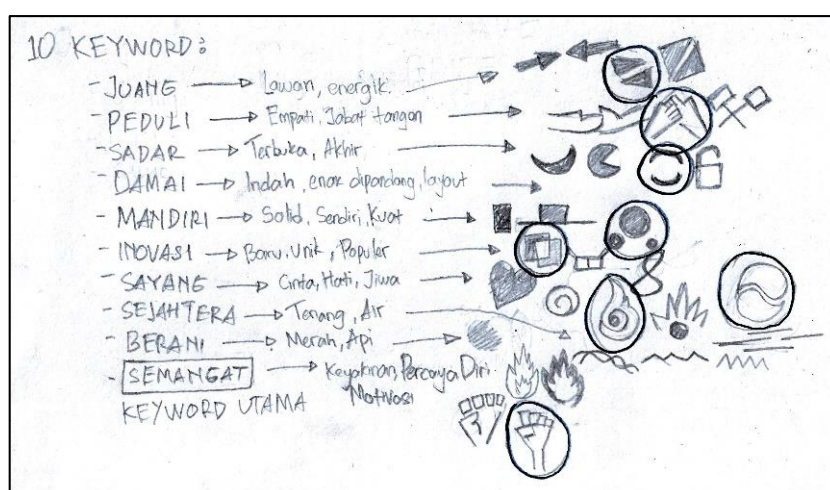 10 KEYWORD:
- JUANG → Lawan, energik.
- PEDULI → Empati, Jabat tangan
- SADAR → Terbuka, Akhir
- DAMAI → Indah, enak dipandang, layout
- MANDIRI → Solid, Sendiri, Kuat
- INOVASI → Baru, Unik, Populer
- SAYANG → Cinta, Hati, Jiwa
- SEJAHTERA → Tenang, Air
- BERANI → Merah, Api
- SEMANGAT → Keyakinan, Percaya Diri
Motivasi
KEYWORD UTAMA